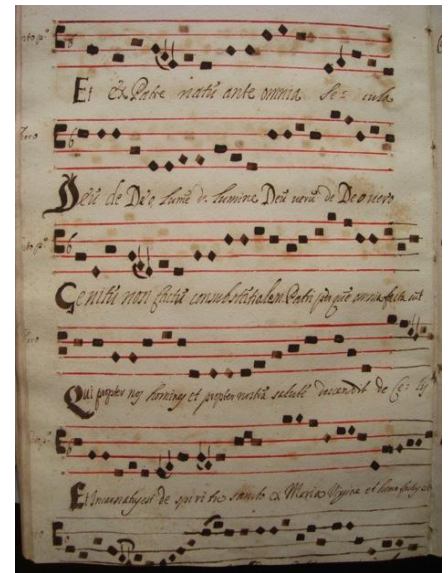 Et Ex Patre natū ante omnia se= cula
Deū de Deo lumē de lumine Deū verū de Deo vero
Genitū non factū consubstātialem Patri per quē omnia facta sūt
Qui propter nos homines et propter nostrā salutē descendit de Ce= lis
Et Incarnatus est de spiritu sancto ex Maria Virgine et homo factus est